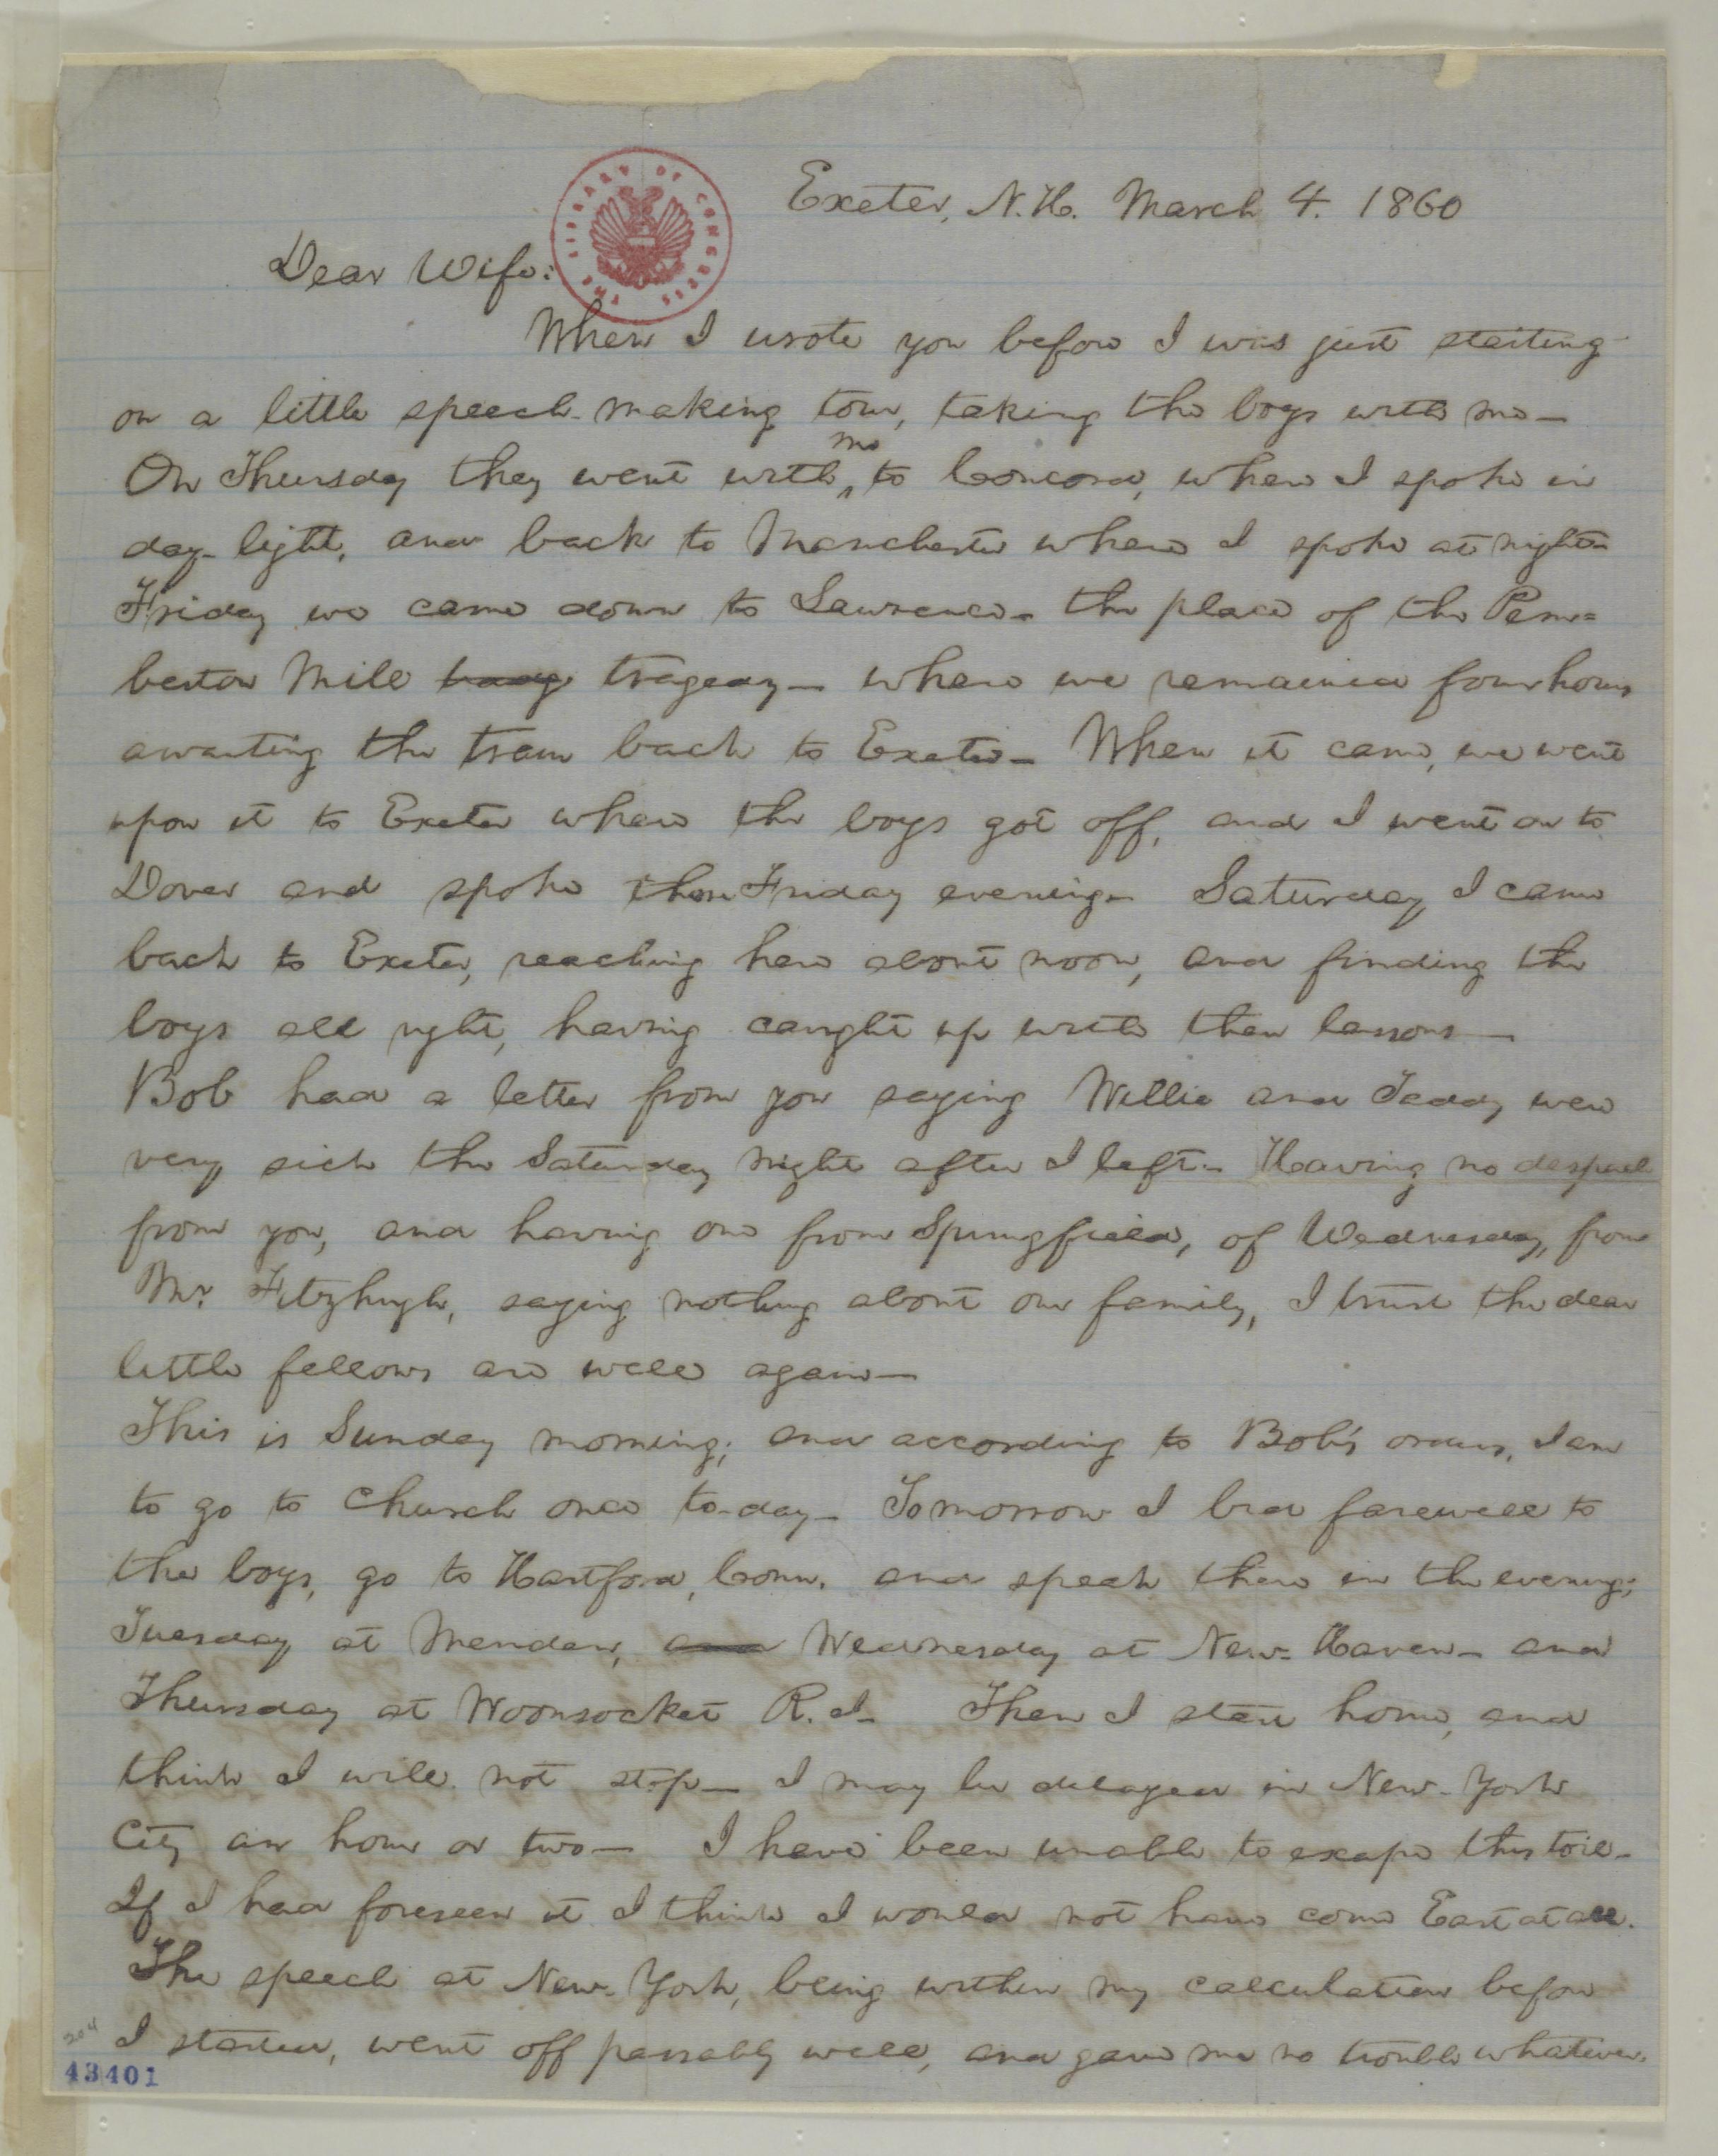 Exeter, N.H. March 4. 1860
THE LIBRARY OF CONGRESS
Dear Wife:
When I wrote you before I was just starting
on a little speech-making tour, taking the boys with me—
On Thursday they went with me to Concord, where I spoke in
day-light, and back to Manchester where I spoke at night—
Friday we came down to Lawrence— the place of the Pem=
berton Mill tragedy— where we remained four hours
awaiting the train back to Exeter— When it came, we went
upon it to Exeter where the boys got off, and I went on to
Dover and spoke there Friday evening— Saturday I came
back to Exeter, reaching here about noon, and finding the
boys all right, having caught up with their lessons—
Bob had a letter from you saying Willie and Taddy were
very sick the Saturday night after I left— Having no despatch
from you, and having one from Springfield, of Wednesday, from
Mr. Fitzhugh, saying nothing about our family, I trust the dear
little fellows are well again—
This is Sunday morning; and according to Bob's orders, I am
to go to church once to-day— Tomorrow I bid farewell to
the boys, go to Hartford, Conn. and speak there in the evening;
Tuesday at Meriden, and Wednesday at New-Haven— and
Thursday at Woonsocket R.I— Then I start home, and
think I will not stop— I may be delayed in New-York
City an hour or two— I have been unable to escape this toil—
If I had foreseen it I think I would not have come East at all.
The speech at New-York, being within my calculation before
I started, went off passably well, and gave me no trouble whatever.
204
43401